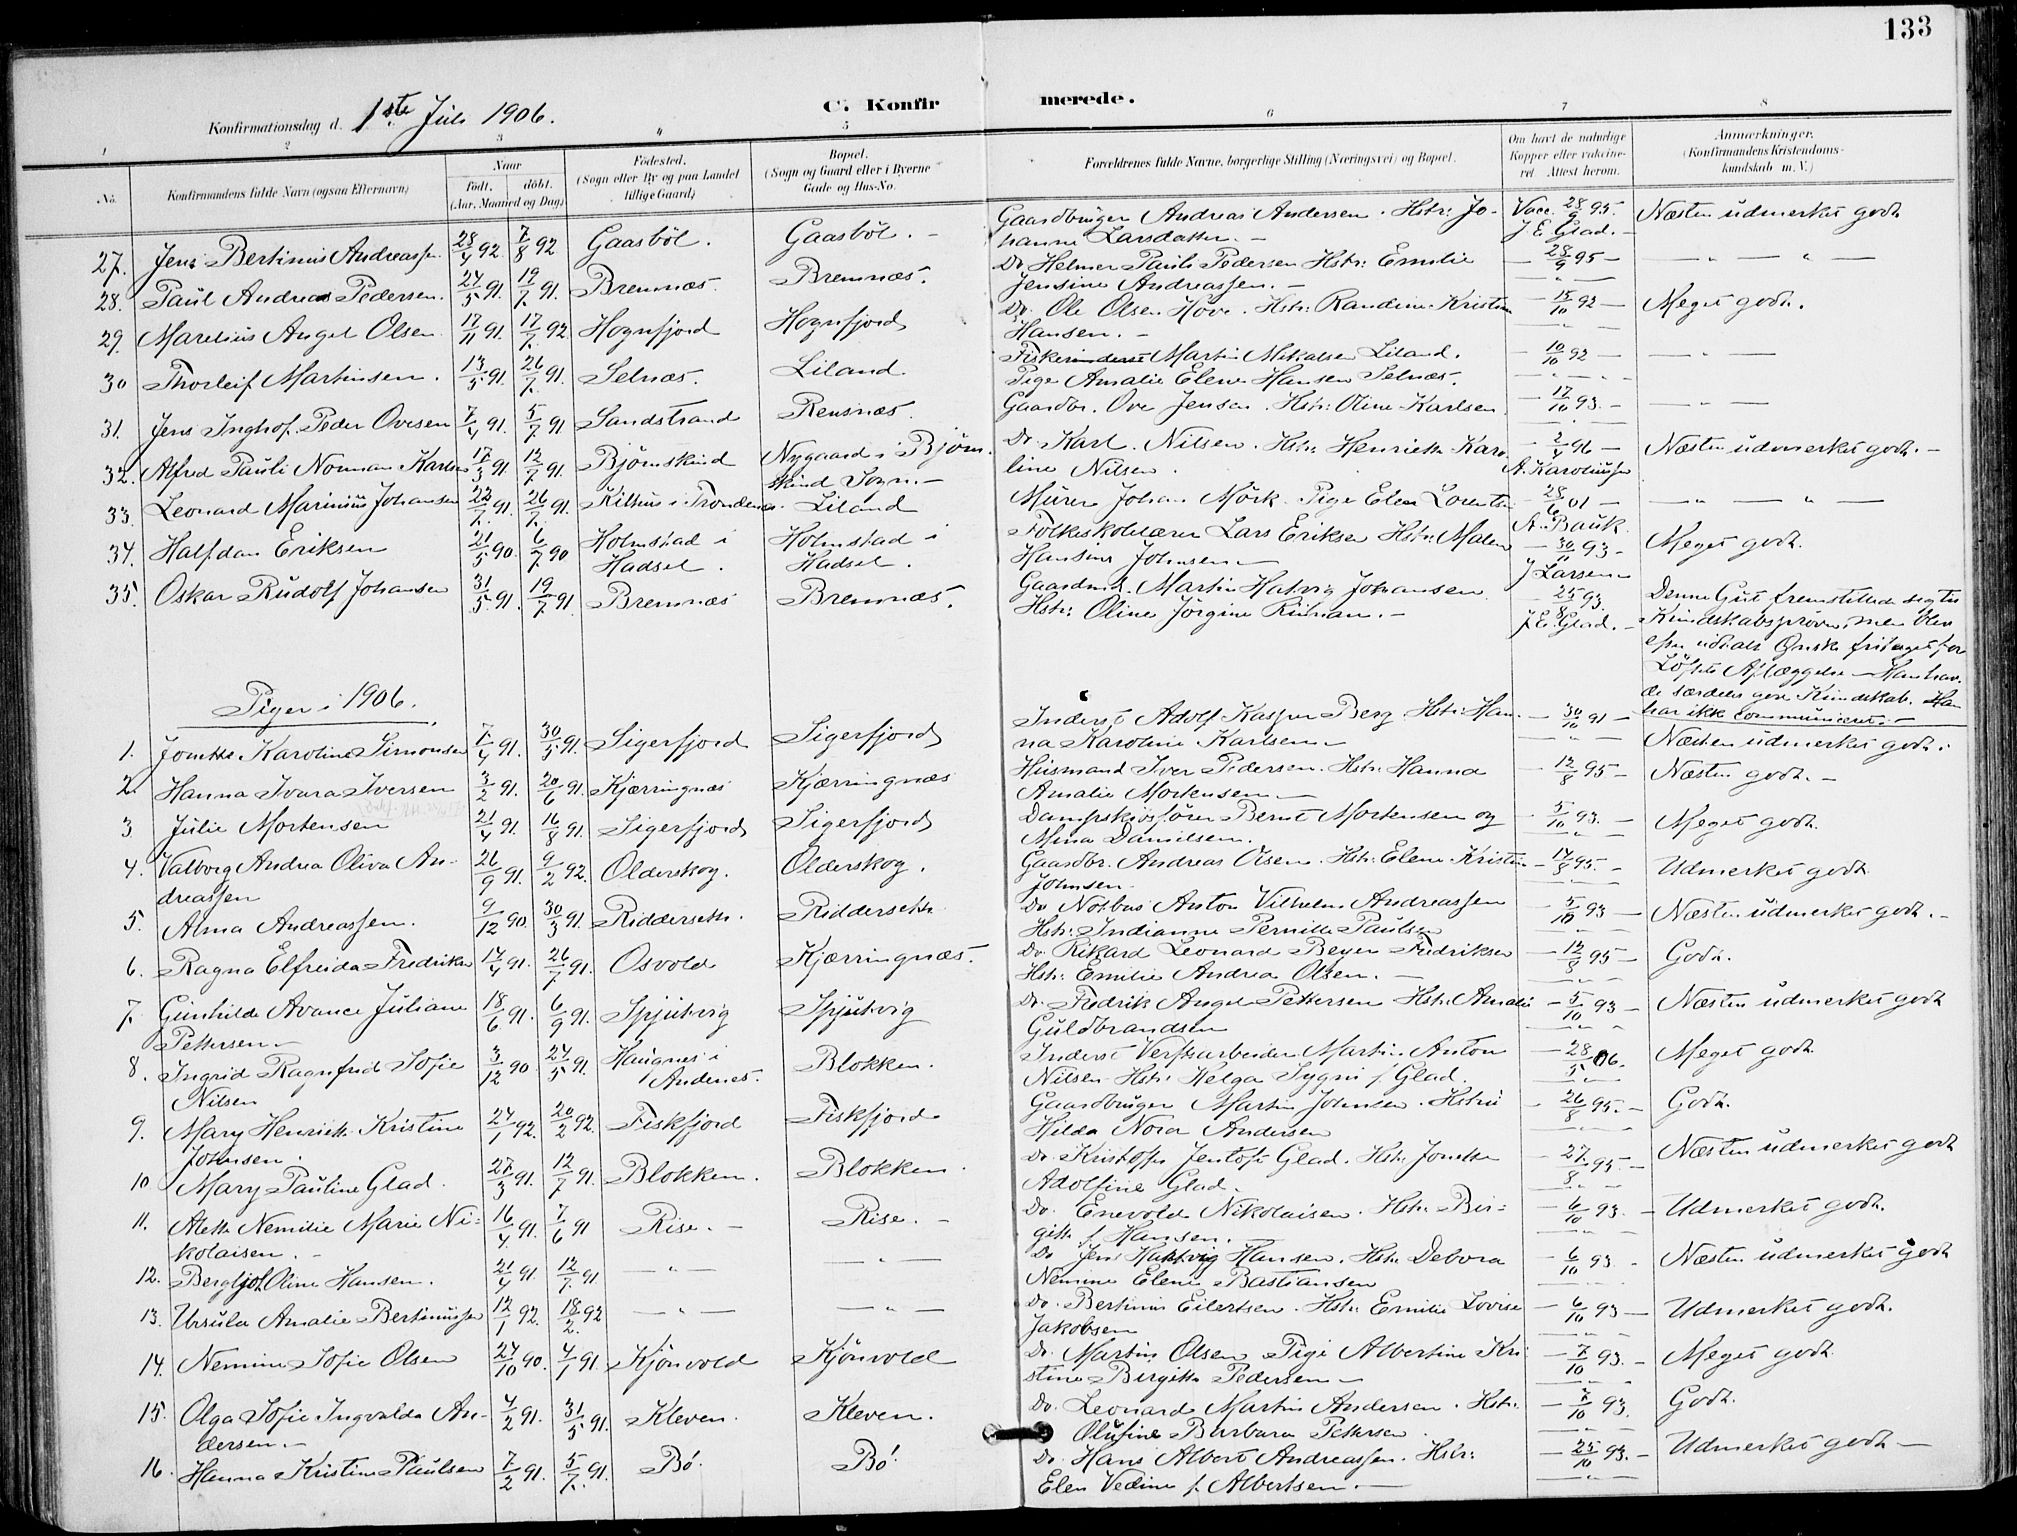 133
C. Konfirmerede.
Konfirmationsdag d. 1ste Juli 1906.
1 2 3 4 5 6 7 8
No.
Konfirmandens fulde Navn (ogsaa Efternavn)
Naar
født. døbt.
(Aar, Maaned og Dag)
Fødested.
(Sogn eller By og paa Landet
tillige Gaard)
Bopæl.
(Sogn og Gaard eller i Byerne
Gade og Hus-No.
Forældrenes fulde Navne, borgerlige Stilling (Næringsvei) og Bopæl.
Om havt de naturlige
Kopper eller vakcineret. Attest herom.
Anmærkninger.
(Konfirmandens Kristendomskundskab m. V.)
27. Jens Bertinius Andreassen 28/4 92 7/8 92 Gaasbøl. Gaasbøl. - Gaardbruger Andreas Andersen. Hstr: Jo- Vacc. 28/9 95. Næsten udmerket godt
hanne Larsdatter. - J E Glad. -
28. Paul Andreas Pedersen. 24/5 91. 19/7 91. Bremnæs. Bremnæs. Do. Helmer Pauli Pedersen Hstr: Emilie - 28/9 95 - — „ — „ —
Jensine Andreassen. -
29. Marelius Angel Olsen 17/11 91. 17/7 92 Hognfjord Hognfjord Do. Ole Olsen Hove. Hstr: Randine Kristin - 15/10 92 - Meget godt.
Hansen. -
30 Thorleif Martinsen. 13/5 91. 26/7 91. Selnæs. Liland. Fisker Martin Mikalsen Liland. - 10/10 92 - — „ —
Pige Amalie Elene Hansen Selnæs.
31. Jens Inghof. Peder Ovesen 7/4 91. 5/7 91 Sandstrand Rensnæs. Gaardbr. Ove Jensen. Hstr: Oline Karlsen - 17/10 93. - — „ —
32. Alfred Pauli Norman Karlsen 17/3 91. 12/7 91. Bjørnskind Nygaard i Bjørn- Do. Karl Nilsen. Hstr: Henriette Karo- - 2/4 96 - Næsten udmerket godt. -
skind Sogn. - line Nilsen. A. Karoliussen
33. Leonard Marinius Johansen 22/7 91. 26/7 91. Kilhus i Trondenæs. Liland Murer Johan Mörk. Pige Elen Lorentse - 28/6 01 - — „ — „ —
A. Bauk
34. Halfdan Eriksen 21/5 90. 6/7 90 Holmstad i Holmstad i Folkeskolelærer Lars Eriksen Hstr: Malene - 30/11 93 - Meget godt.
Hadsel. Hadsel. Hansine Johnsen J Larsen
35. Oskar Rudolf Johansen 31/5 91. 19/7 91. Bremnæs Bremnæs. Gaardmd. Martin Hatvig Johansen - 25/8 93. Denne Gut fremstillede sig til
Hstr: Oline Jørgine - J. E. Glad. - Kundskabsprøven, men blev
efter udtalt Ønske fritaget for
Löftets Aflæggelse - Han hav-
de særdeles god Kundskab. Han
har ikke communiceret. -
Piger i 1906.
1. Jonette Karoline Simonsen 7/4 91. 30/5 91. Sigerfjord Sigerfjord Inderst Adolf Kasper Berg Hstr: Han- - 30/10 91 - Næsten udmerket godt.
na Karoline Karlsen -
2. Hanna Ivara Iversen 3/2 91. 20/6 91. Kjærringnæs Kjærringnæs Husmand Iver Pedersen. Hstr: Hanna - 12/8 95 - Næsten godt. -
Amalie Mortensen -
3 Julie Mortensen 21/4 91. 16/8 91. Sigerfjord Sigerfjord Dampskibsfører Bernt Mortensen og - 5/10 93. - Meget godt.
Mina Danielsen.
4. Valborg Andrea Oliva An- 26/9 91. 9/2 92. Olderskog. Olderskog. Gaardbr. Andreas Olsen. Hstr: Elene Kristin - 17/8 95. - Udmerket godt.
dreassen Johnsen
5. Alma Andreassen. 9/12 90. 30/3 91. Riddersette. Riddersette Do Notbus Anton Vilhelm Andreassen - 5/10 93 - Næsten udmerket godt. -
Hstr: Indianne Pernille Paulsen
6. Ragna Elfreida Fredriksen 17/4 91. 26/7 91. Osvold Kjærringnæs. Do Rikard Leonard Beyer Fredriksen - 12/8 95 - Godt.
Hstr: Emilie Andrea Olsen. -
7. Gunhilde Avance Juliane 18/6 91. 6/9 91. Spjutvig Spjutvig Do. Fredrik Angel Pettersen Hstr: Amalie - 5/10 93 - Næsten udmerket godt
Pettersen - Guldbrandsen
8. Ingrid Ragnfrid Sofie 3/12 90 24/5 91. Haugnes i Blokken. Inderst Verftsarbeider Martin Anton - 28/5 06. Meget godt.
Nilsen Andenes. Nilsen. Hstr: Helga Sygni f. Glad.
9. Mary Henriette Kristine 24/1 92. 20/2 92. Fiskfjord Fiskfjord Gaardbruger Martin Johnsen. Hstru - 26/8 95. - Godt.
Johnsen. Hilda Nora Andersen
10 Mary Pauline Glad. 27/3 91. 12/7 91. Blokken. Blokken. Do. Kristoffer Jentoft Glad. Hstr: Jonette - 27/8 95. - Næsten udmerket godt
Adolfine Glad.
11. Alette Nemilie Marie Ni- 16/4 91. 7/6 91 Rise. - Rise. - Do. Enevold Nikolaisen. Hstr: Bir- - 6/10 93. - Udmerket godt.
kolaisen. - gitte f. Hansen.
12. Bergljot Oline Hansen. 21/4 91. 12/7 91 — „ — — „ — Do Jens Hartvig Hansen. Hstr: Debora - 6/10 93 - Næsten udmerket godt
Nemine Eline Bastiansen
13. Ursula Amalie Bertinussen 12/1 92. 18/2 92 — „ — — „ — Do. Bertinus Eilertsen. Hstr: Emilie Lovise - 6/10 93 - Udmerket godt.
Jakobsen
14. Nemine Sofie Olsen 24/10 90. 4/1 91. Kjønvold Kjønvold Do. Martin Olsen Pige Albertine Kri- - 7/10 93. - Meget godt
stine Birgitte Pedersen -
15. Olga Sofie Ingvalda An- 4/2 91. 31/5 91. Kleven. Kleven. Do. Leonard Martin Andersen. Hstr: - 7/10 93. Godt.
dersen. - Olufine Barbara Pettersen
16. Hanna Kristine Paulsen 7/2 91. 5/7 91. Bø. Bø. Do. Hans Albert Andreassen. Hstr: - 25/10 93. - Udmerket godt -
Elen Vedine f. Albertsen. -